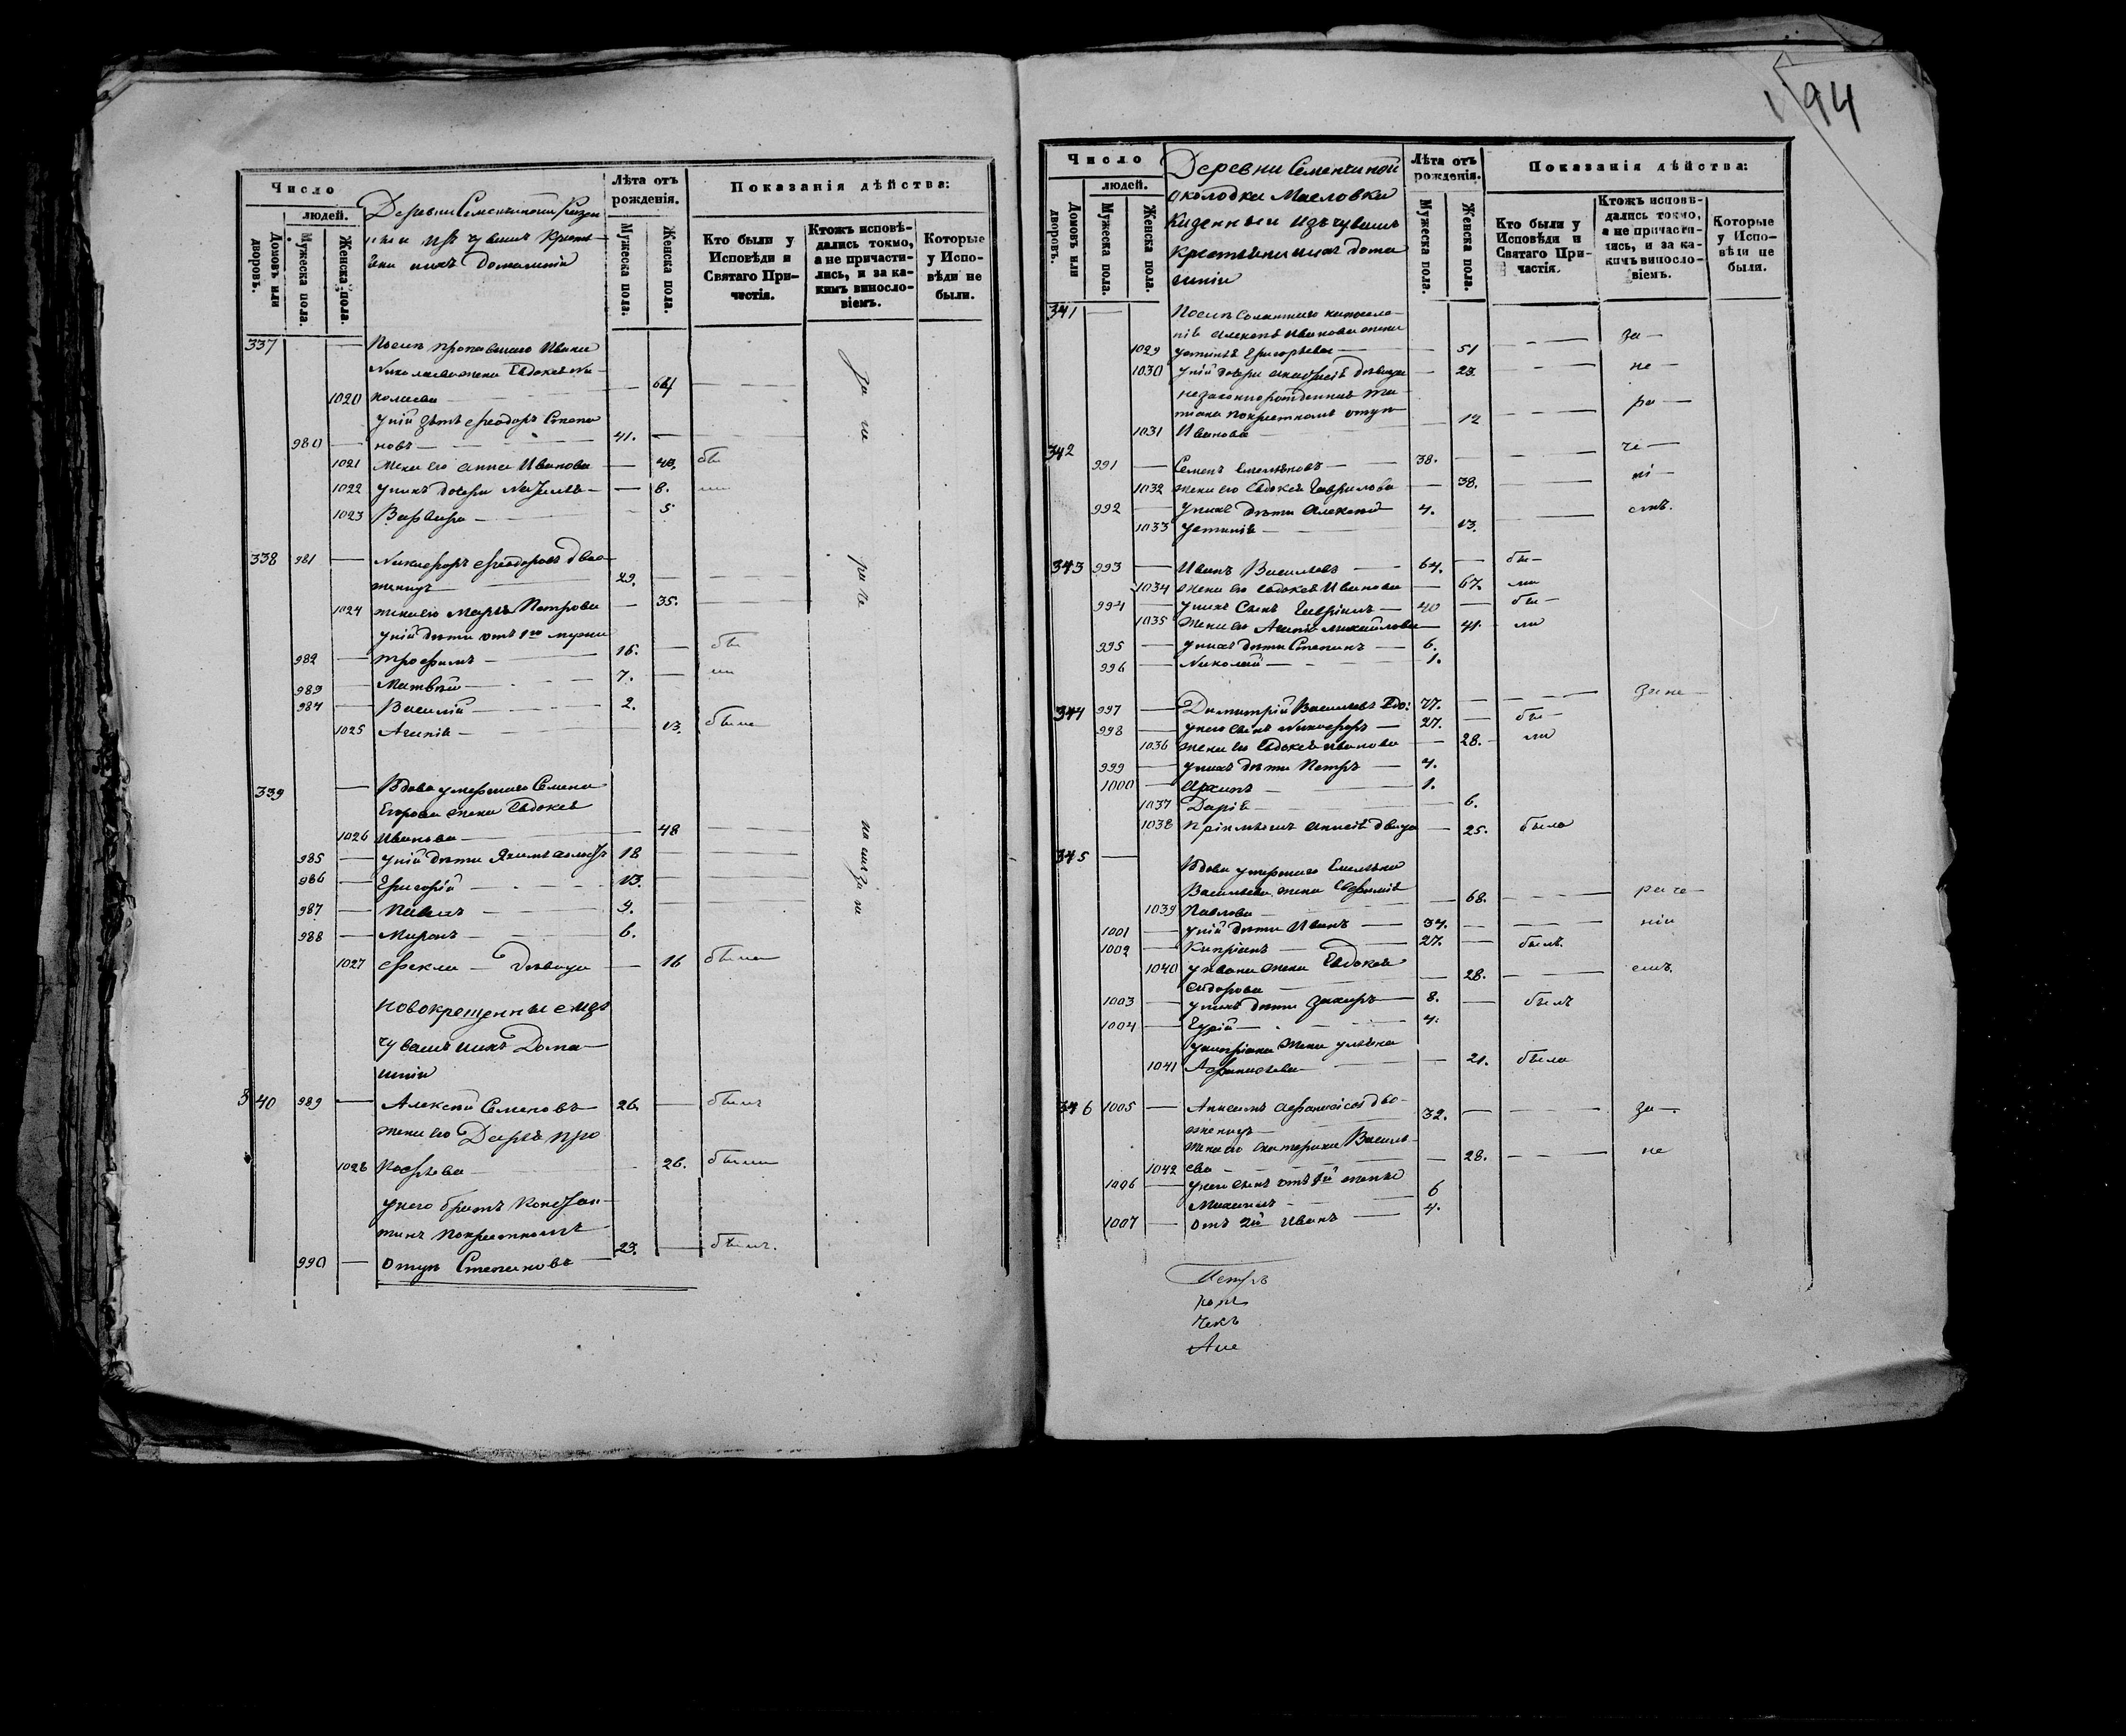 Число
людей.
Домовъ или дворовъ.
Мужеска пола.
Женска пола.
Деревни Семенчиной Казен
ныи изъ чувашъ Кресть
яни ихъ Домашніи
Лѣта отъ рожденія.
Мужеска пола.
Женска пола.
Показанія дѣйства:
Кто были у Исповѣди и Святаго Причастія.
Ктожъ исповѣдались токмо, а не причастились, и за какимъ винословіемъ.
Которые у Исповѣди не были.
337 — Ивана
Николаева жена Евдокея Ни
1020 колаева — 64
у ней зять Феодоръ Степа
980 — новъ — 41.
1021 жена его Анна Иванова — 40. бы
1022 у нихъ дочери — 8. ли
1023 Варвара — 5
за не
338 981 — Никифоръ Феодоровъ двое
женецъ — 29.
1024 жена его Марья Петрова — 35.
у ней дѣти отъ 1го мужа
982 — Трофимъ — 16. бы
983 — Матвей — 7. ли
984 — Василій — 2.
1025 — 13. была
ра че
339 — Вдова умершаго Семена
Егорова жена Евдокея
1026 Иванова — 48
985 — у ней дѣти 18
986 — Григорій — 13.
987 — Павелъ — 9.
988 — Миронъ — 6.
1027 Фекла — Дѣвица — 16 была
Новокрещенные изъ
чувашъ ихъ Дома
шніи
340 989 — Алексей Семеновъ — 26. былъ
жена его Дарья Про
1028 кофьева — 26. была
у него братъ Констан
тинъ по крестному
990 — отцу Степановъ — 23. былъ.
94
Число
людей.
Домовъ или дворовъ.
Мужеска пола.
Женска пола.
Деревни Семенчиной
околодка Масловки
Казенныи изъ чувашъ
крестьяни ихъ дома
шніи
Лѣта отъ рожденія.
Мужеска пола.
Женска пола.
Показанія дѣйства:
Кто были у Исповѣди и Святаго Причастія.
Ктожъ исповѣдались токмо, а не причастились, и за какимъ винословіемъ.
Которые у Исповѣди не были.
341 —
Иванова жена за —
1029 Устинья Григорьева — 51
1030 у ней дочери дѣвица — 23. не —
незаконнорожденная Та
тіана по крестному отцу ра —
1031 Иванова — 12
342 че —
991 — Семенъ Емельяновъ — 38.
1032 жена его Евдокея Гаврилова — 38. ні —
992 — у нихъ дѣти Алексей 4. емъ.
1033 Устинія — 13.
343 993 — Иванъ Васильевъ — 64. бы —
1034 жена его Евдокея Иванова — 67. ли
994 — у нихъ сынъ Гавріилъ — 40 бы —
1035 жена его Михайлова — 41. ли
995 — у нихъ дѣти Степанъ — 6.
996 — Николай — 1.
344 997 — Димитрій Васильевъ вдо: 77. за не —
998 — у него сынъ Никифоръ — 27. бы —
1036 жена его Евдокея Иванова — 28. ли
999 — у нихъ дѣти Петръ — 4.
1000 — Архипъ — 1.
1037 Дарія — 6.
1038 — 25. была
345 —
Вдова умершаго Емельяна
Васильева жена Евфимія
1039 Павлова — 68. ра че —
1001 — у ней дѣти Иванъ — 34. ніи
1002 — Кипріанъ — 27. былъ.
1040 у Ивана жена Евдокея
Сидорова — 28. емъ.
1003 — у нихъ дѣти Захаръ — 8. былъ
1004 — Гурій — 4.
у Кипріана жена Ульяна
1041 Афанасьева — 21. была
346 1005 — Анисимъ Афанасіевъ дво
женецъ — 32. за —.
жена его Екатерина Василь
1042 ева — 28. не
1006 — у него сынъ отъ 1й жены
Михаилъ — 6
1007 — отъ 2й Иванъ — 4.
Петръ